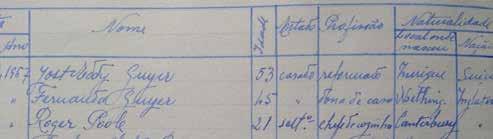 Nome Idade Estado Profissão Naturalidade
Ano Local onde nasceu Nação
1967 Guyer 53 casado reformado Zurique Suiça
" Fernanda Guyer 45 " dona de casa Worthing Inglaterra
" Roger Poole 21 soltº chefe de cozinha Canterbury "